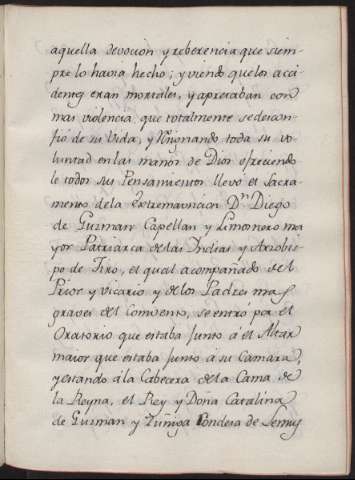 aquella devocion y reberencia que siem-
pre lo havia hecho; y viendo que los acci-
dentes eran mortales, y apretaban con
mas violencia, que totalmente se descon-
fió de su vida, y resignando toda su vo-
luntad en las manos de Dios ofreciendo
le todos sus Pensamientos llevó el Sacra-
mento de la Extremauncion Dⁿ Diego
de Guzman Capellan y Limosnero ma
yor Patriarca de las Indias y Arzobis-
po de Tiro, el qual acompañado del
Prior y vicario y de los Padres mas
graves del Comvento, se entró por el
Oratorio que estaba junto á el Altar
maior que estaba junto á su Camara,
y estando á la Cabecera de la Cama de
la Reyna, el Rey y Doña Catalina
de Guzman y Zuñiga Condesa de Lemus